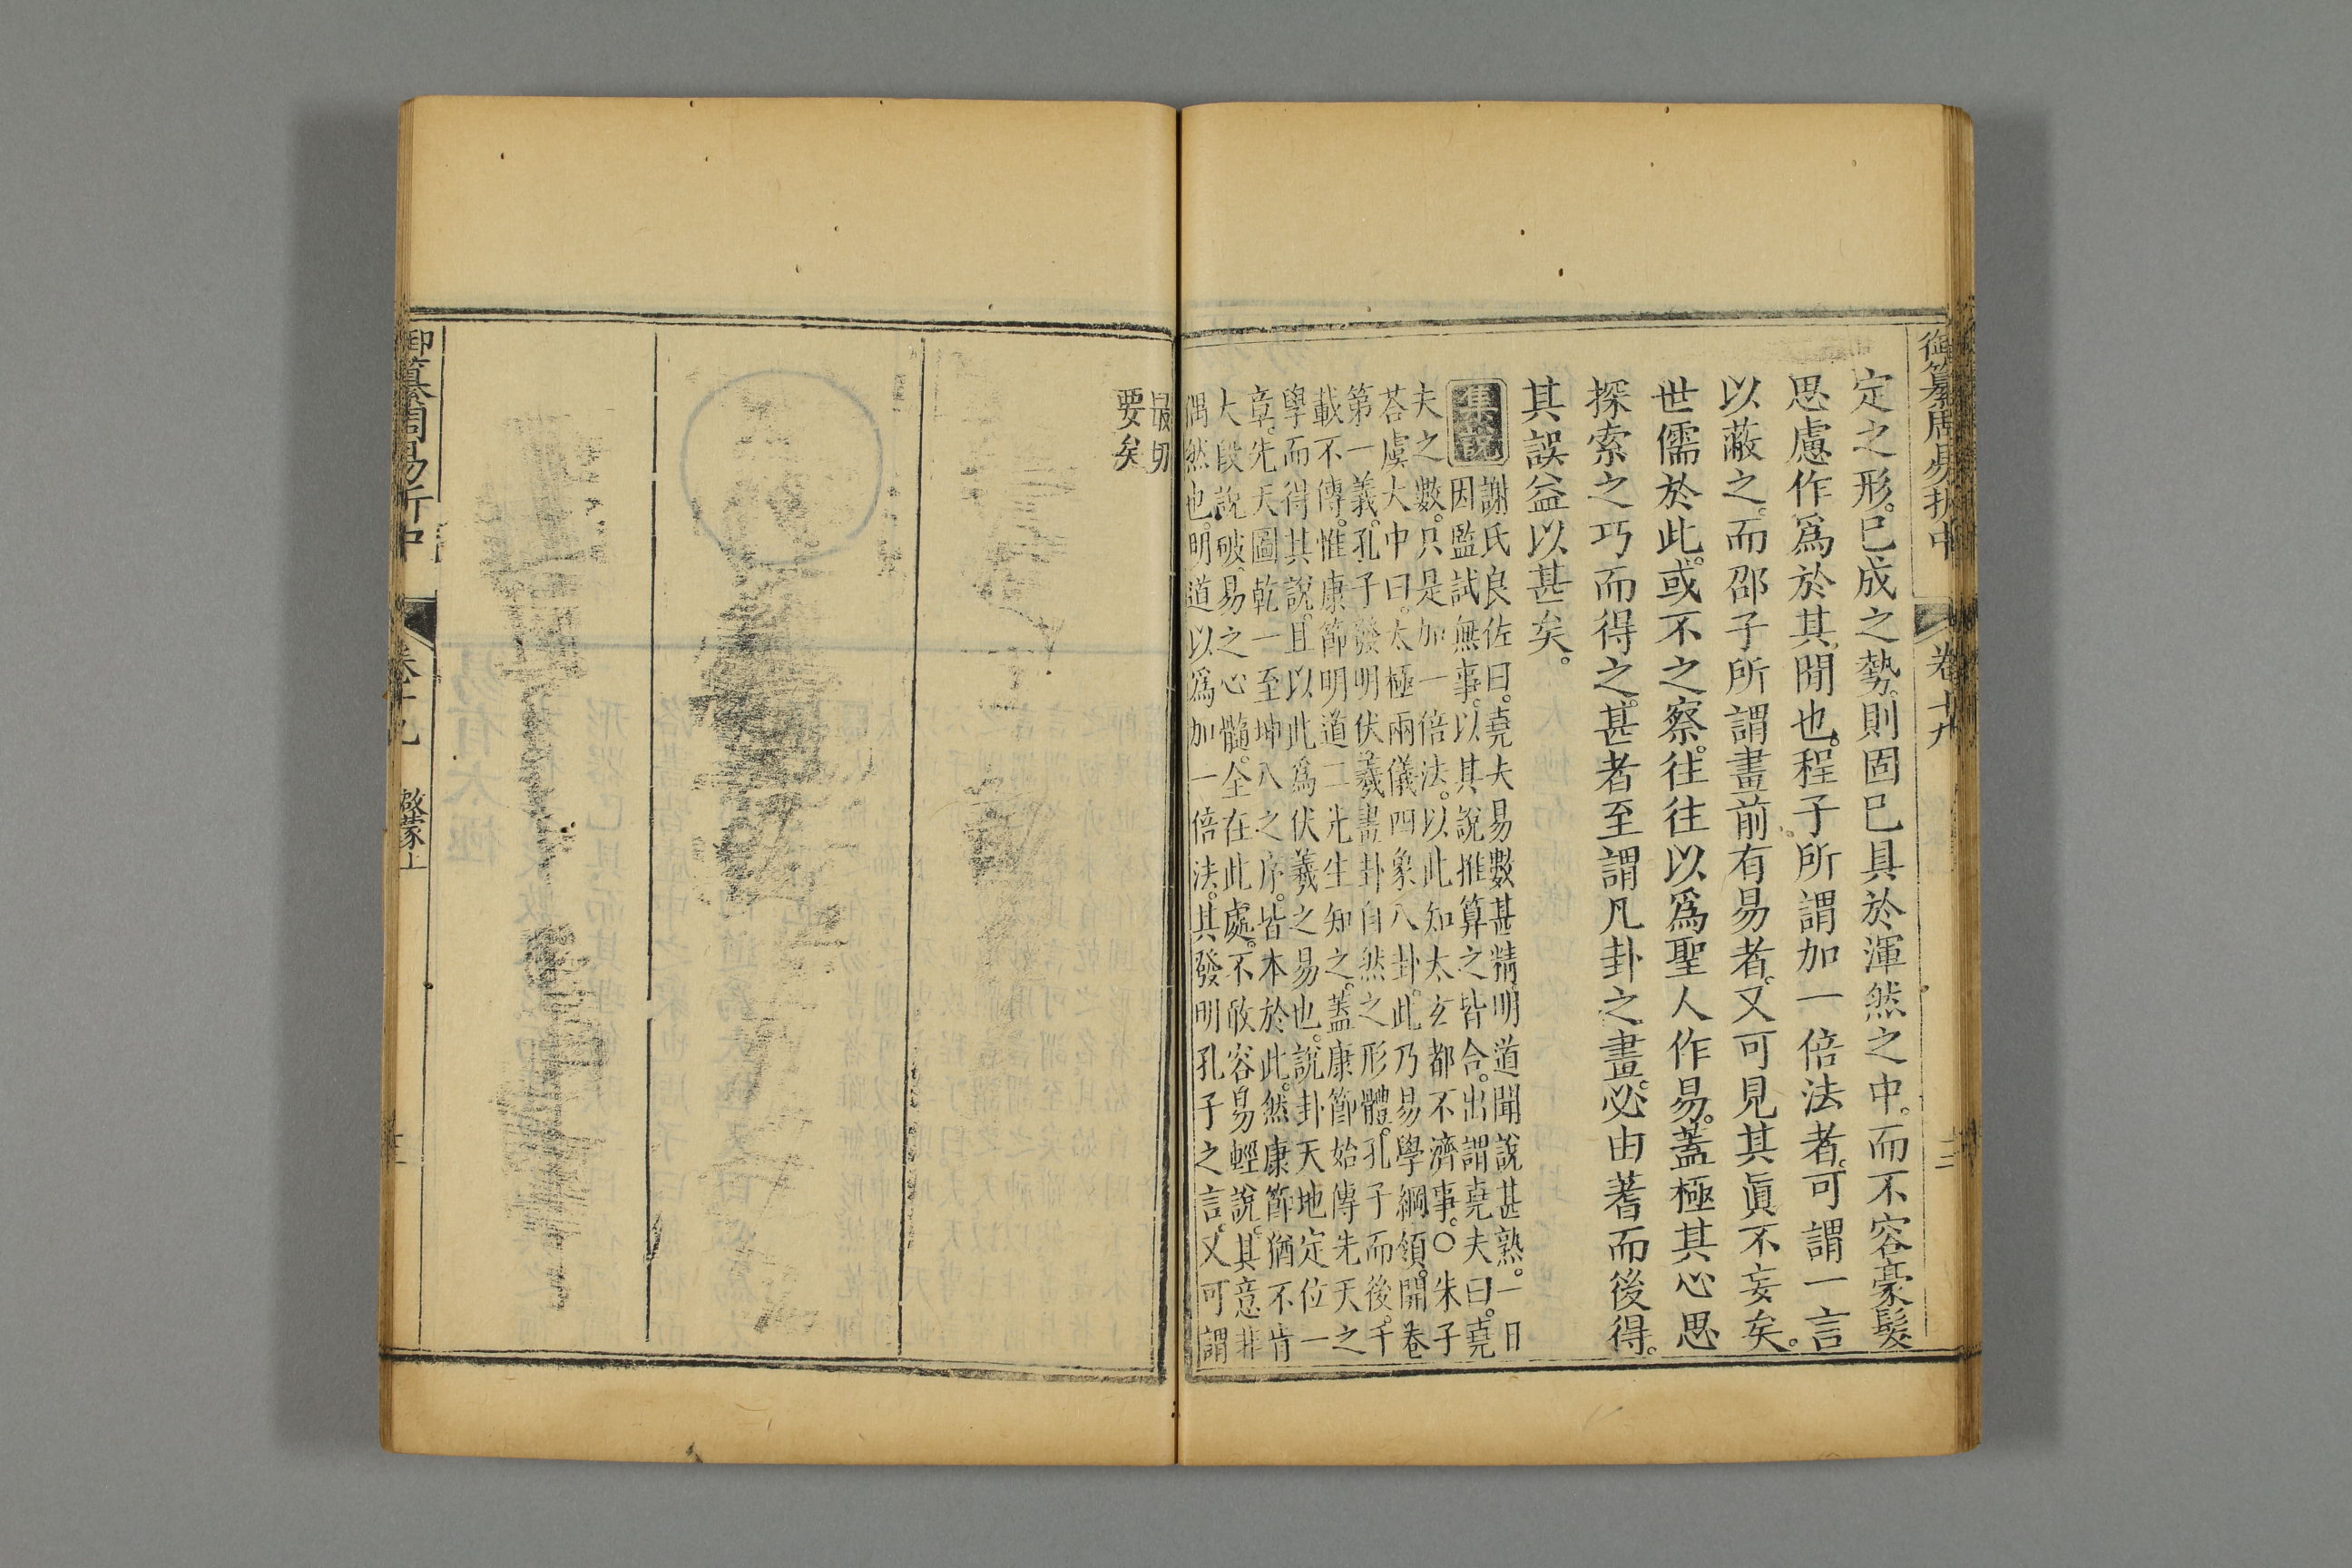 御纂周易折中 卷十九
定之形。已成之勢。則固已具於渾然之中。而不容毫髮
思慮作爲於其閒也。程子所謂加一倍法者。可謂一言
以蔽之。而邵子所謂畫前有易者。又可見其眞不妄矣。
世儒於此。或不之察。往往以爲聖人作易。蓋極其心思
探索之巧而得之。甚者至謂凡卦之畫。必由蓍而後得。
其誤益以甚矣。
集說
謝氏良佐曰。堯夫易數甚精。明道聞說甚熟。一日
因監試無事。以其說推算之皆合。出謂堯夫曰。堯
夫之數。只是加一倍法。以此知太玄都不濟事。○朱子
荅虞大中曰。太極兩儀四象八卦。此乃易學綱領。開卷
第一義。孔子發明伏羲畫卦自然之形體。孔子而後。千
載不傳。惟康節明道二先生知之。蓋康節始傳先天之
學而得其說。且以此爲伏羲之易也。說卦天地定位一
章。先天圖乾一至坤八之序。皆本於此。然康節猶不肯
大段說破。易之心髓。全在此處。不敢容易輕說。其意非
偶然也。明道以爲加一倍法。其發明孔子之言。又可謂
最切
要矣
御纂周易折中 卷十九 啟蒙上